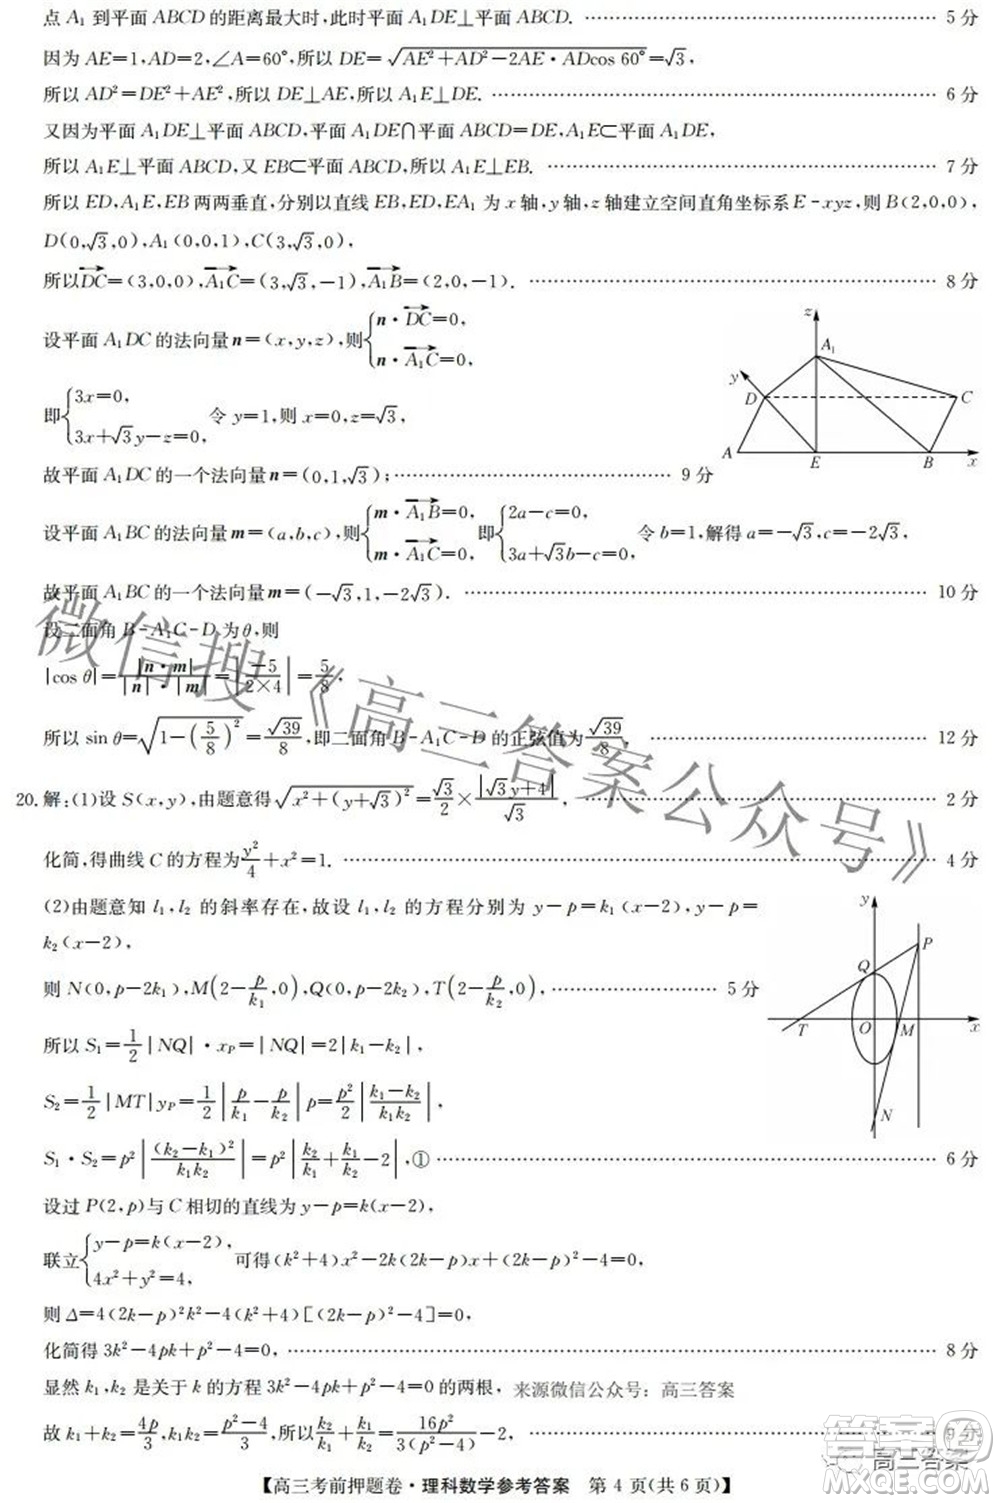 点 A₁ 到平面 ABCD 的距离最大时,此时平面 A₁DE⊥平面 ABCD. ………… 5 分
因为 AE=1,AD=2,∠A=60°,所以 DE=√(AE²+AD²−2AE·ADcos 60°)=√3,
所以 AD²=DE²+AE²,所以 DE⊥AE,所以 A₁E⊥DE. ………… 6 分
又因为平面 A₁DE⊥平面 ABCD,平面 A₁DE∩平面 ABCD=DE,A₁E⊂平面 A₁DE,
所以 A₁E⊥平面 ABCD,又 EB⊂平面 ABCD,所以 A₁E⊥EB. ………… 7 分
所以 ED,A₁E,EB 两两垂直,分别以直线 EB,ED,EA₁ 为 x 轴,y 轴,z 轴建立空间直角坐标系 E-xyz,则 B(2,0,0),
D(0,√3,0),A₁(0,0,1),C(3,√3,0),
所以DC→=(3,0,0),A₁C→=(3,√3,−1),A₁B→=(2,0,−1). ………… 8 分
设平面 A₁DC 的法向量 n=(x,y,z),则{n·DC→=0, n·A₁C→=0,
即{3x=0, 3x+√3y−z=0, 令 y=1,则 x=0,z=√3,
故平面 A₁DC 的一个法向量 n=(0,1,√3); ………… 9 分
z
A₁
y
D
C
A
E
B
x
设平面 A₁BC 的法向量 m=(a,b,c),则{m·A₁B→=0, m·A₁C→=0, 即{2a−c=0, 3a+√3b−c=0, 令 b=1,解得 a=−√3,c=−2√3,
故平面 A₁BC 的一个法向量 m=(−√3,1,−2√3). ………… 10 分
设二面角 B-A₁C-D 为 θ,则
|cos θ|=|n·m|/(|n|·|m|)=|−5/(2×4)|=5/8,
所以 sin θ=√(1−(5/8)²)=√39/8,即二面角 B-A₁C-D 的正弦值为√39/8. ………… 12 分
20.解:(1)设 S(x,y),由题意得√(x²+(y+√3)²)=√3/2×|√3y+4|/√3, ………… 2 分
化简,得曲线 C 的方程为y²/4+x²=1. ………… 4 分
(2)由题意知 l₁,l₂ 的斜率存在,故设 l₁,l₂ 的方程分别为 y−p=k₁(x−2),y−p=
k₂(x−2),
则 N(0,p−2k₁),M(2−p/k₁,0),Q(0,p−2k₂),T(2−p/k₂,0), ………… 5 分
所以 S₁=1/2|NQ|·xₚ=|NQ|=2|k₁−k₂|,
S₂=1/2|MT|yₚ=1/2|p/k₁−p/k₂|p=p²/2|(k₁−k₂)/(k₁k₂)|,
y
P
Q
T
O
M
x
N
S₁·S₂=p²|(k₂−k₁)²/(k₁k₂)|=p²|k₂/k₁+k₁/k₂−2|,① ………… 6 分
设过 P(2,p)与 C 相切的直线为 y−p=k(x−2),
联立{y−p=k(x−2), 4x²+y²=4, 可得(k²+4)x²−2k(2k−p)x+(2k−p)²−4=0,
则 Δ=4(2k−p)²k²−4(k²+4)[(2k−p)²−4]=0,
化简得 3k²−4pk+p²−4=0, ………… 8 分
显然 k₁,k₂ 是关于 k 的方程 3k²−4pk+p²−4=0 的两根, 来源微信公众号：高三答案
故 k₁+k₂=4p/3,k₁k₂=(p²−4)/3,所以k₂/k₁+k₁/k₂=16p²/(3(p²−4))−2, ………… 9 分
【高三考前押题卷·理科数学参考答案 第 4 页(共 6 页)】
微信搜《高三答案公众号》
高三答案